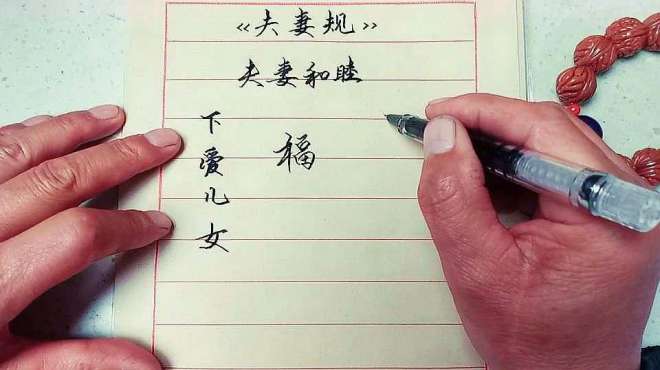 《夫妻规》
夫妻和睦
下爱儿女
福